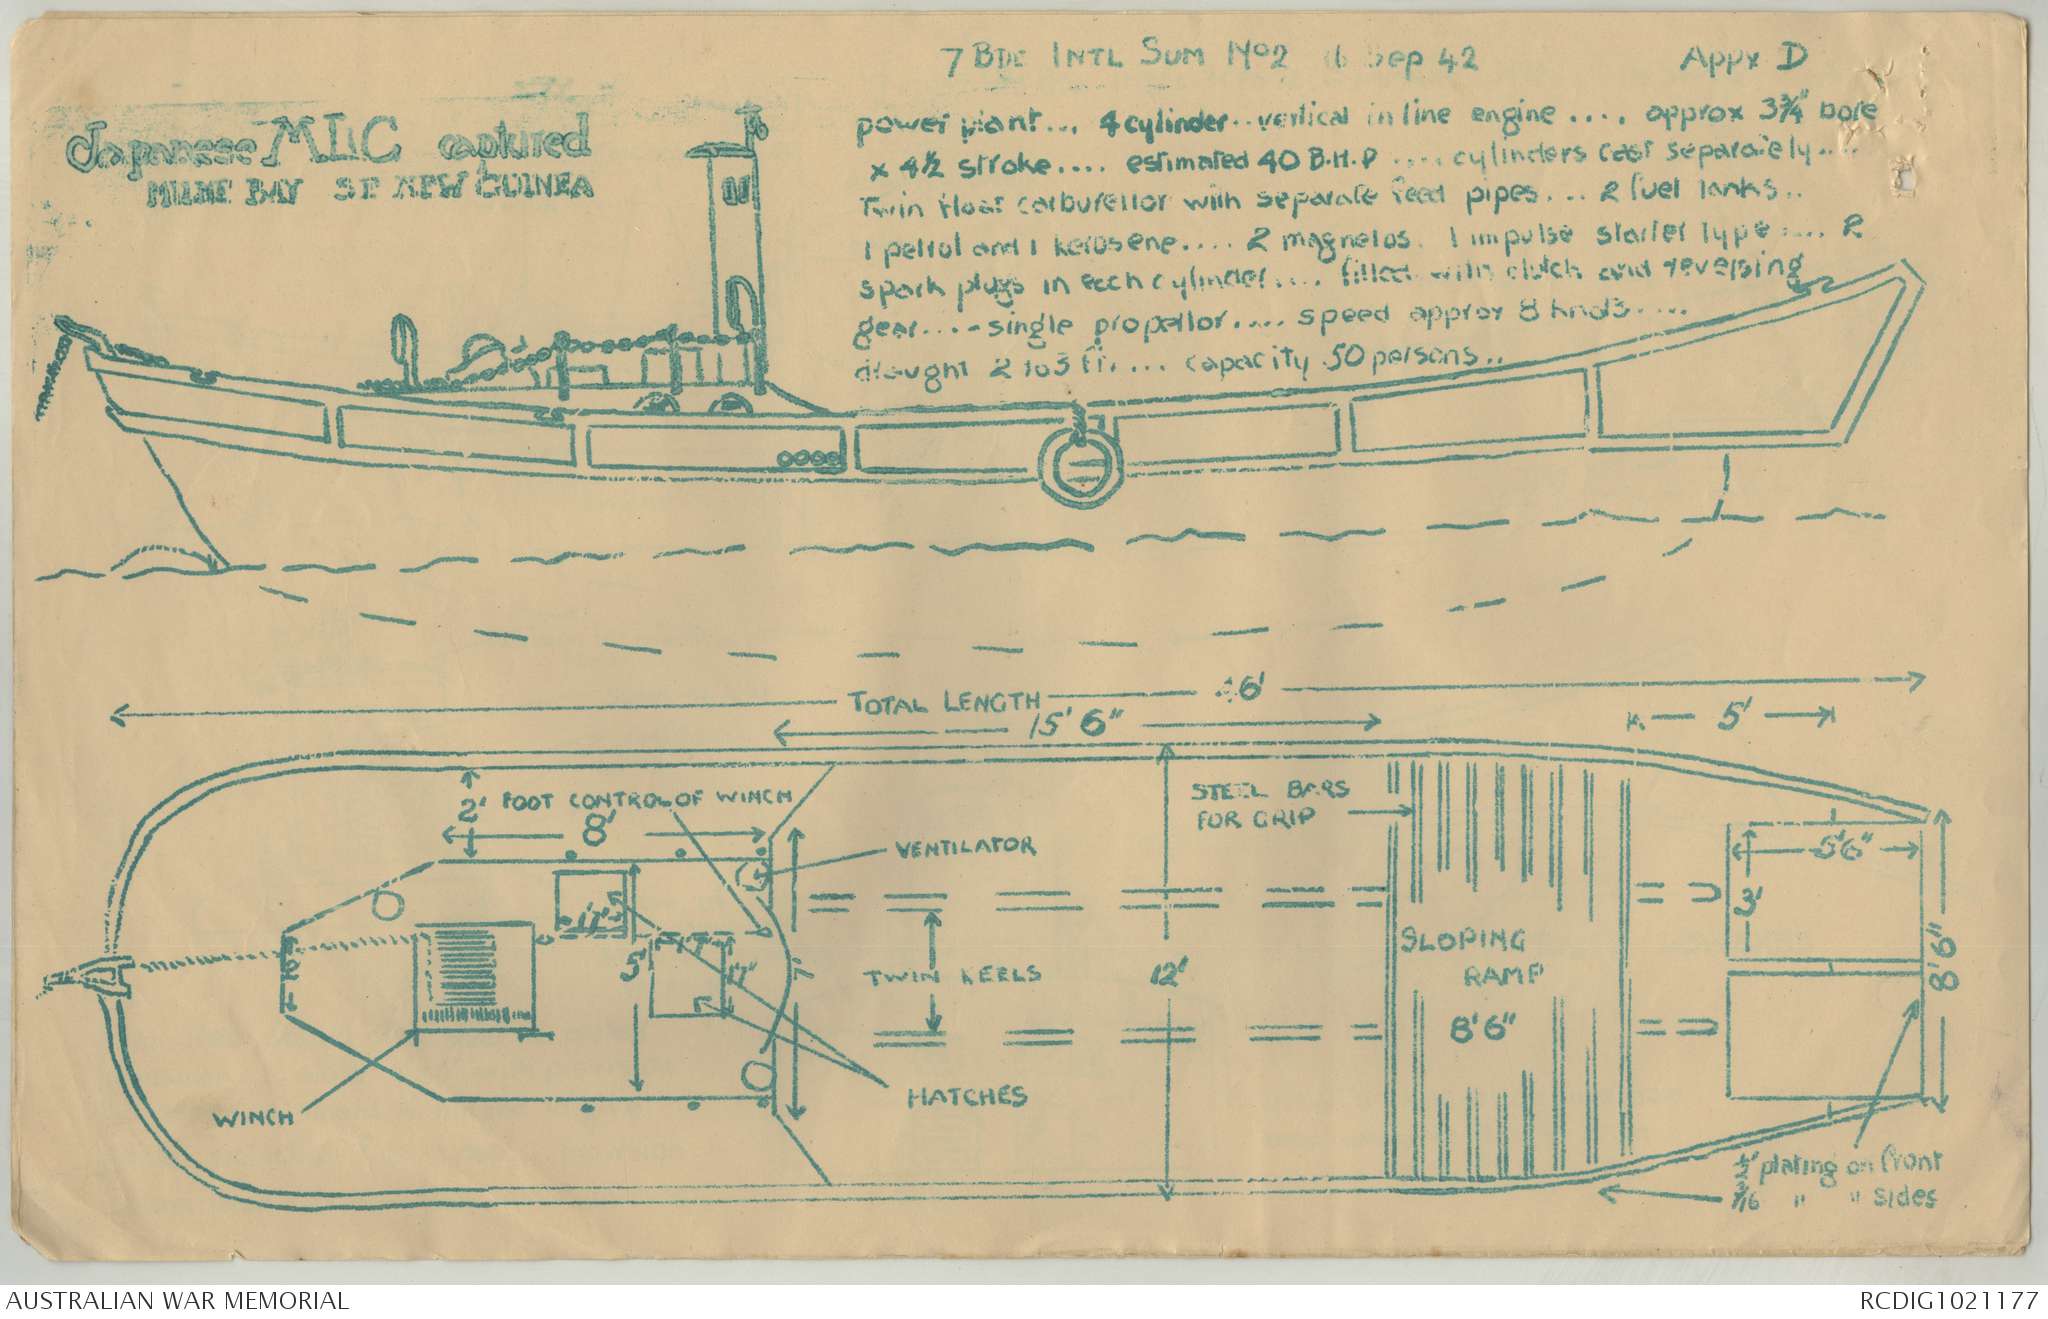 7 BDE INTL SUM No2 6 Sep 42 Appx D
Japanese MLC captured
MILNE BAY SE NEW GUINEA
power plant... 4 cylinder.. vertical in line engine .... approx 3¾" bore
x 4½ stroke.... estimated 40 B.H.P .... cylinders cast separately....
Twin float carburettor with separate feed pipes... 2 fuel tanks..
1 petrol and 1 kerosene.... 2 magnetos. 1 impulse starter type .... 2
spark plugs in each cylinder.... fitted with clutch and reversing
gear....- single propellor.... speed approx 8 knots.....
draught 2 to 3 ft.... capacity 50 persons..
TOTAL LENGTH 46'
15' 6"
5'
2'
FOOT CONTROL OF WINCH
8'
VENTILATOR
STEEL BARS
FOR GRIP
5'6"
3'
8'6"
17"
17"
5'
7'
TWIN KEELS
12'
SLOPING
RAMP
8' 6"
HATCHES
WINCH
½" plating on front
3/16 " " sides
AUSTRALIAN WAR MEMORIAL
RCDIG1021177